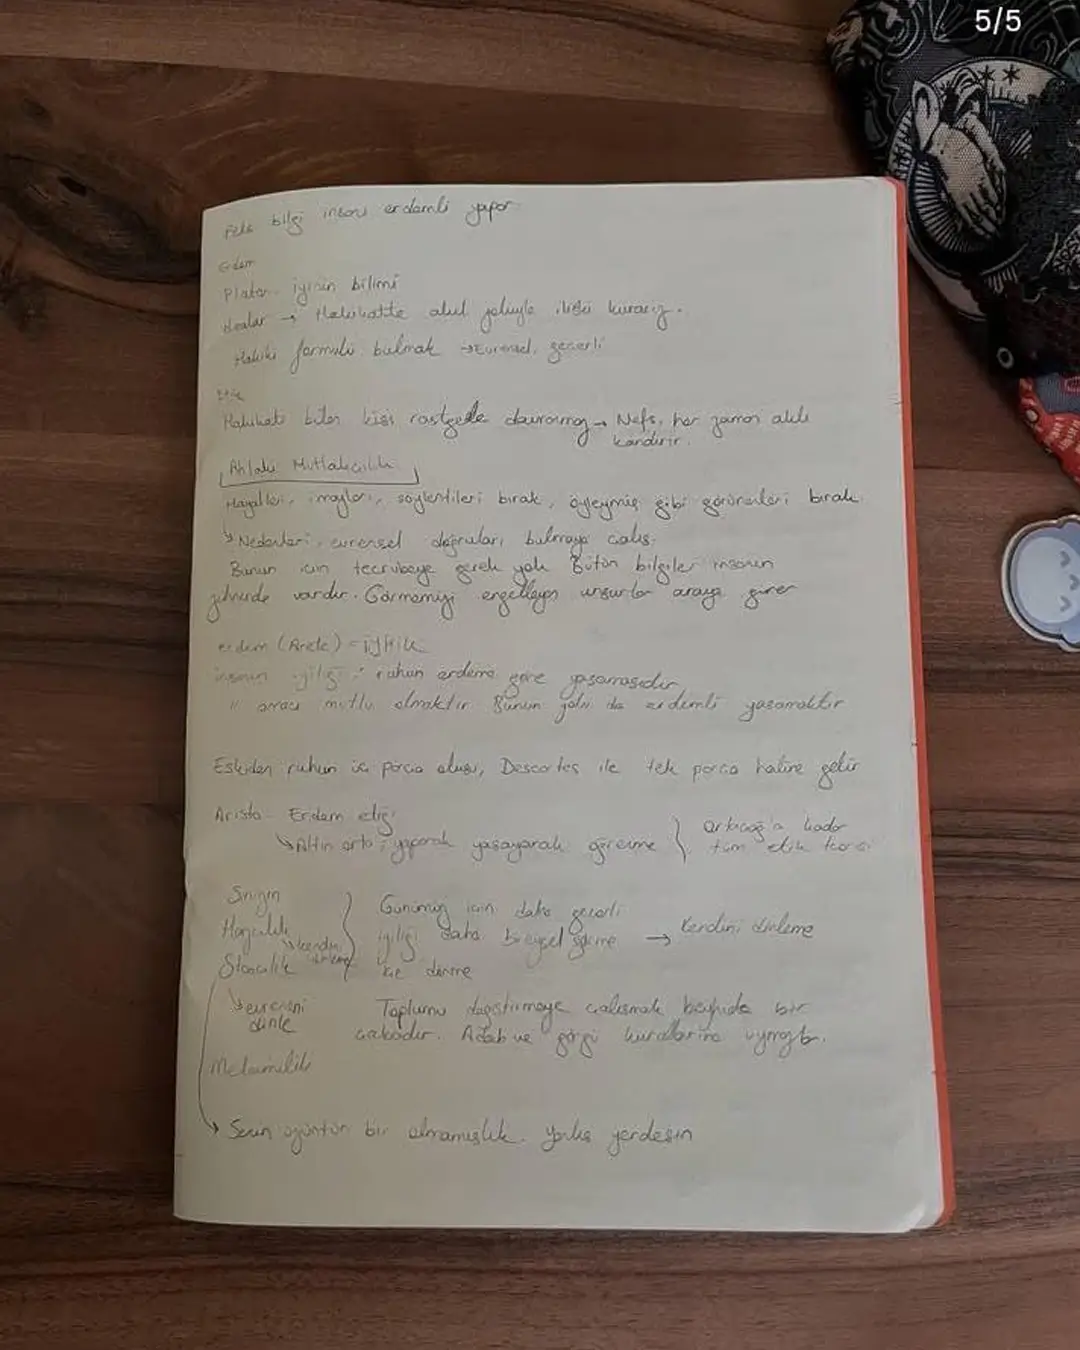 5/5
bilgi insanı erdemli yapar
Erdem
Platon iyinin bilimi
idealar → Hakikatte akıl yoluyla ilişki kurarız.
Hakiki formülü bulmak → Evrensel, geçerli
Etik
Hakikati bilen kişi rastgele davranmaz → Nefs, her zaman aklı
kandırır.
Ahlaki Mutlakçılık
Hayalleri, imajları, söylentileri bırak, öyleymiş gibi görünenleri bırak
Nedenleri, evrensel doğruları bulmaya çalış.
Bunun için tecrübeye gerek yok Bütün bilgiler insanın
zihninde vardır. Görmemizi engelleyen unsurlar araya girer
erdem (Arete) = iyilik
insanın iyiliği: ruhun erdeme göre yaşamasıdır
" amacı mutlu olmaktır Bunun yolu da erdemli yaşamaktır
Eskiden ruhun üç parça oluşu, Descartes ile tek parça haline gelir
Aristo - Erdem etiği
Altın orta, yaparak yaşayarak öğrenme } Ortaçağ'a kadar
tüm etik teorisi
Sinizm
Hazcılık → kendini dinleme } Günümüz için daha geçerli
iyiliği daha bireysel görme → Kendini dinleme
Stoacılık içe dönme
evreni dinle
Toplumu değiştirmeye çalışmak beyhude bir
çabadır. Adab ve görgü kurallarına uymaz.
Melamilik
Senin özüntün bir olmamışlık. Yanlış yerdesin